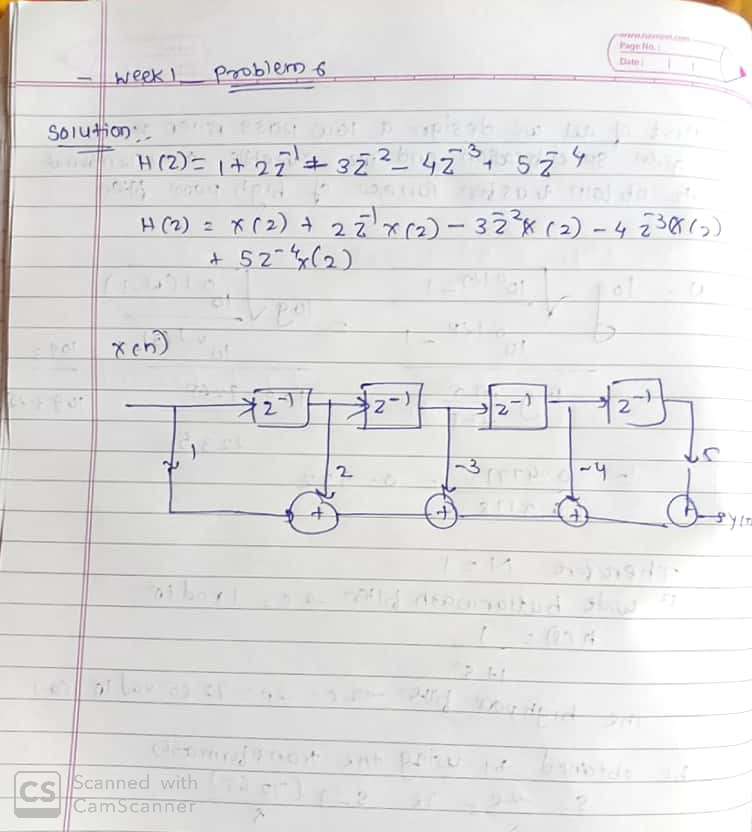 www.navneet.com
Page No. :
Date :
- Week 1 Problem 6
Solution:-
H(z) = 1 + 2z^-1 + 3z^-2 - 4z^-3 + 5z^-4
H(z) = x(z) + 2z^-1 x(z) - 3z^-2 x(z) - 4z^-3 x(z)
+ 5z^-4 x(z)
x(n)
z^-1 z^-1 z^-1 z^-1
1 2 -3 -4 5
+ + + + y(n
CS Scanned with
CamScanner